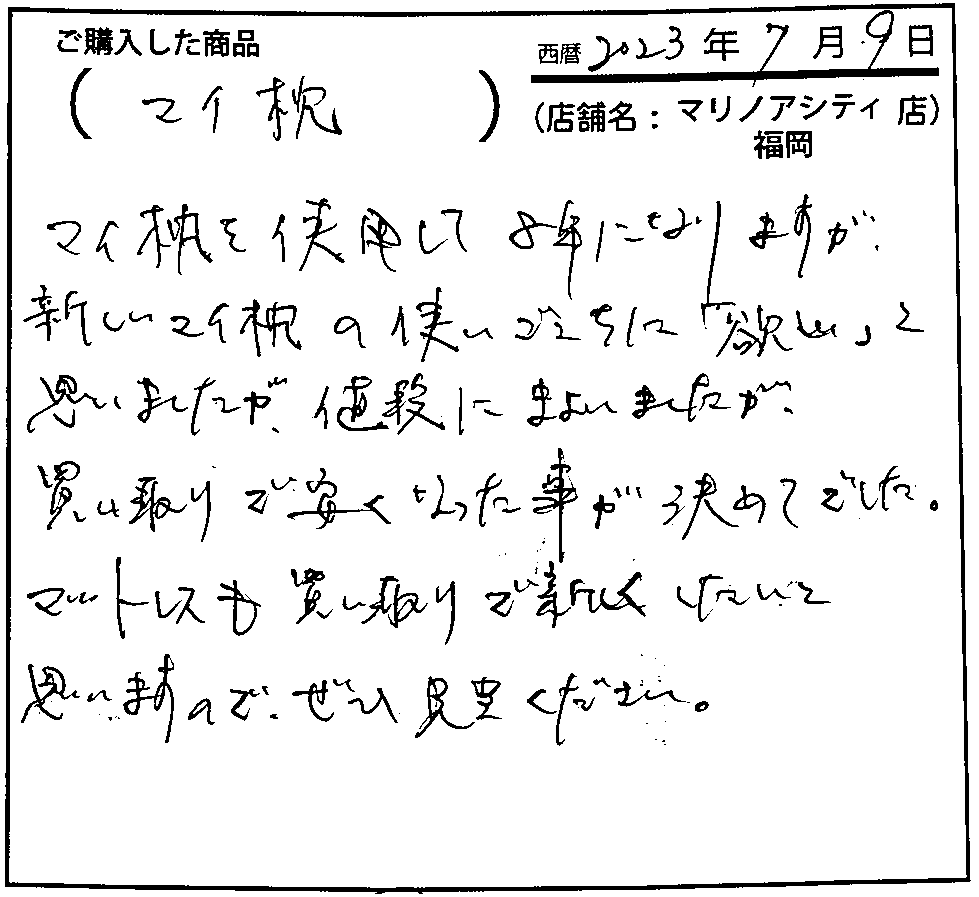 ご購入した商品
西暦 2023 年 7 月 9 日
( マイ枕 )
(店舗名: マリノアシティ 店)
福岡
マイ枕を使用して8年になりますが、
新しいマイ枕の使いごこちに「欲しい」と
思いましたが、値段にまよいましたが、
買い取りで安くなった事が決めてでした。
マットレスも買い取りで新しくしたいと
思いますので、ぜひ 見 ください。